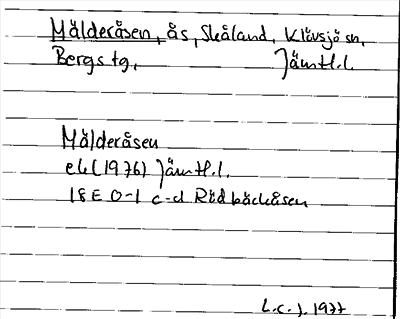 Mälderåsen, ås, Skåland, Klövsjö sn,
Bergs tg, Jämtl.l.
Mälderåsen
ek (1976) Jämtl.l.
18E 0-1 c-d Rödbackåsen
L.C.J. 1977